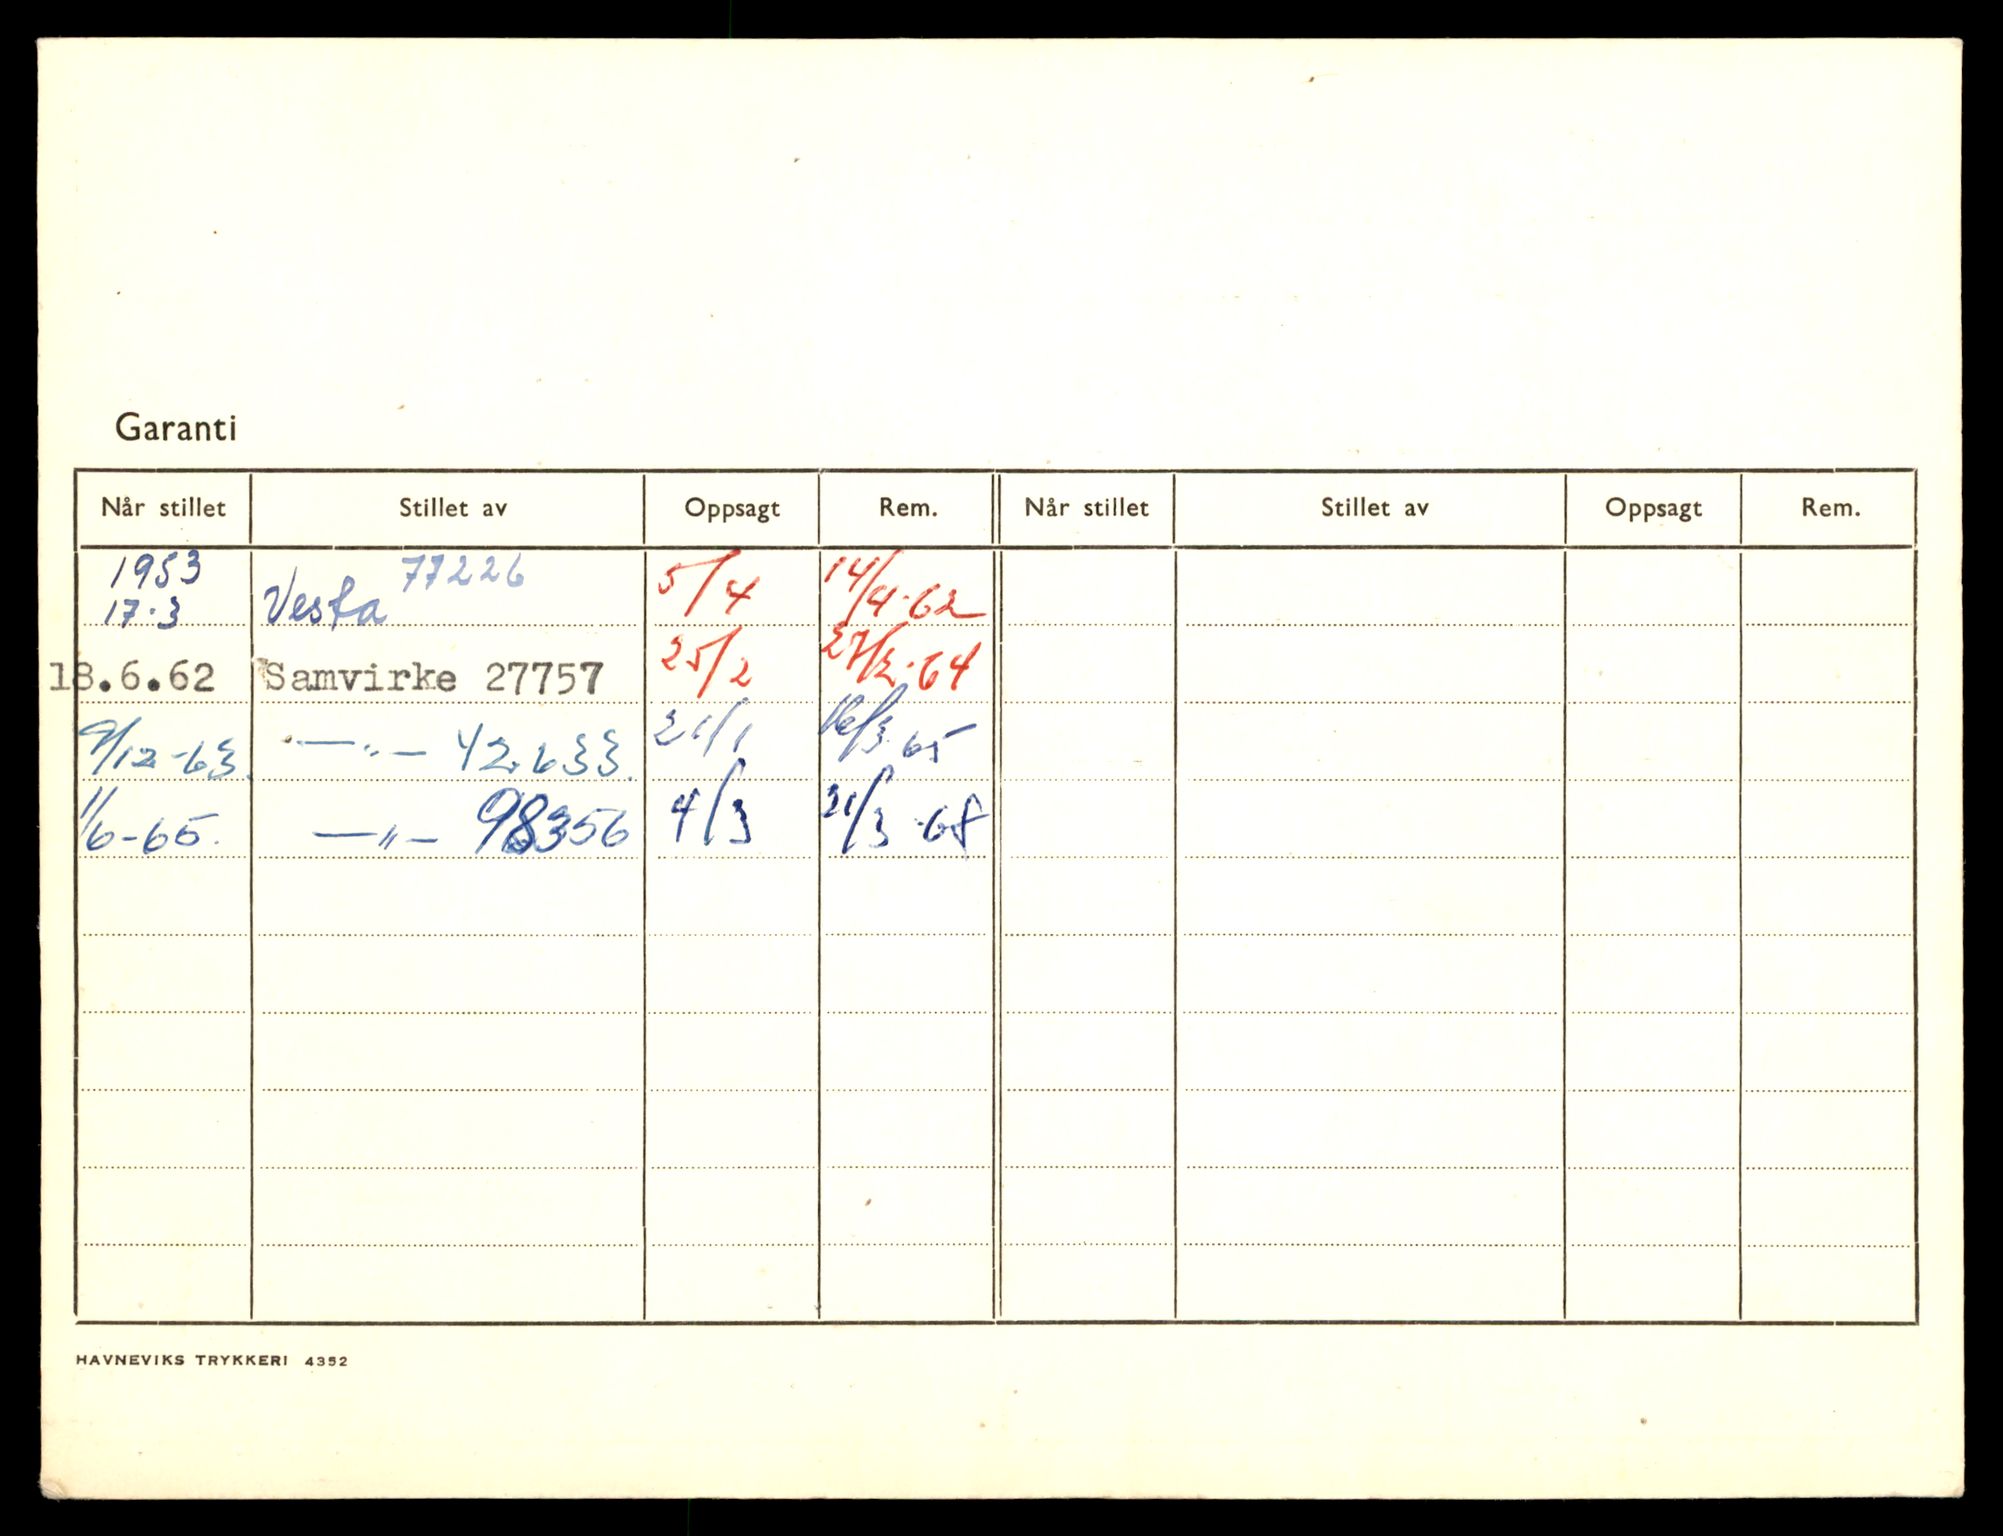 Garanti
Når stillet Stillet av Oppsagt Rem. Når stillet Stillet av Oppsagt Rem.
1953 17.3 Vesta 77226 5/4 14/4.62
18.6.62 Samvirke 27757 25/2 27/2.64
9/12-63. —"— 42.633. 21/1 16/3 65
1/6-65. —"— 98356 4/3 21/3.68
HAVNEVIKS TRYKKERI 4352